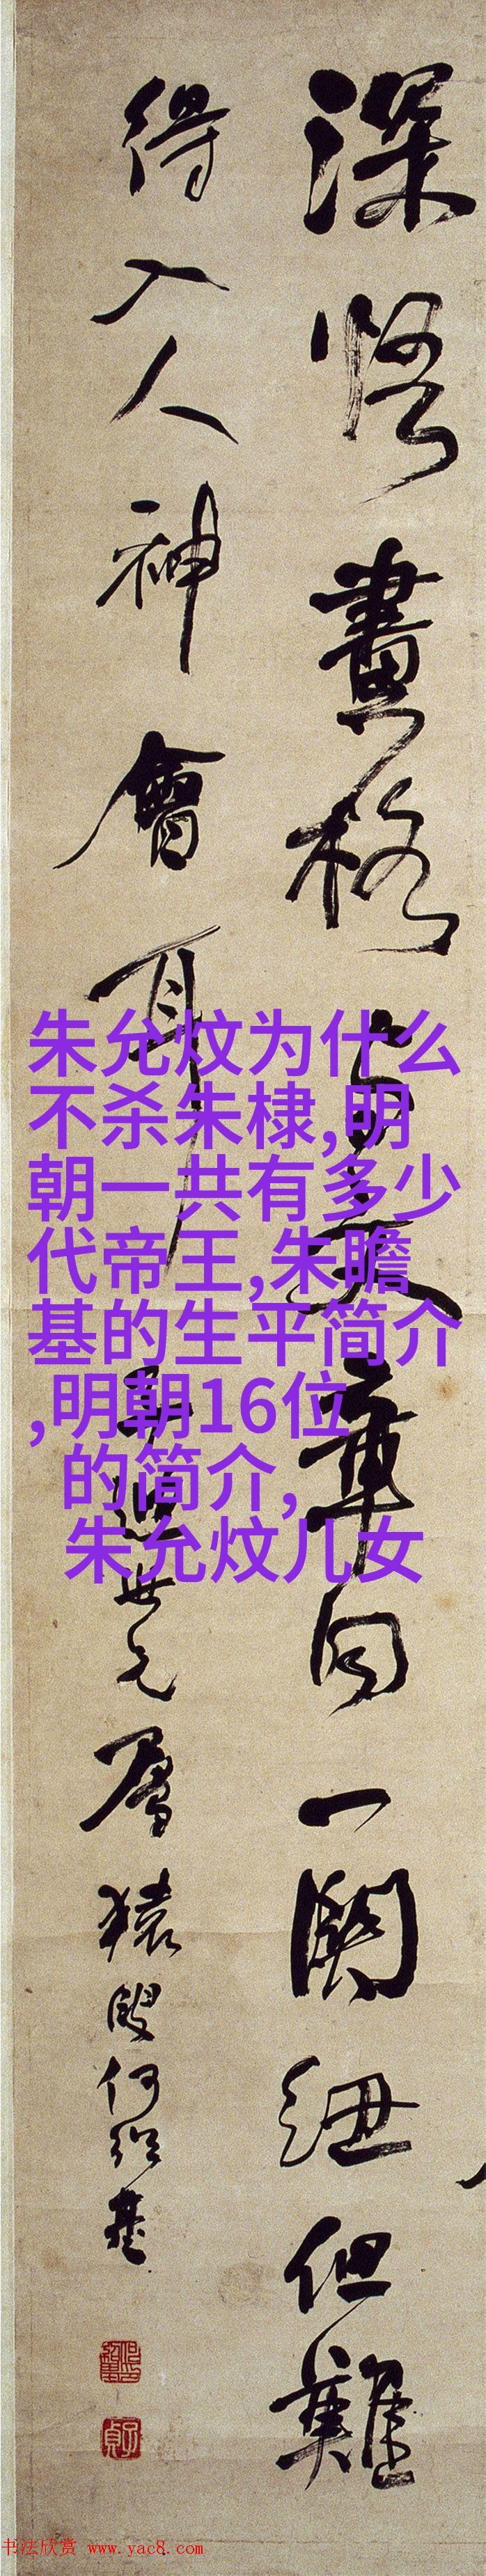 深悟畫格與文章同一關紐但難
得入人神會耳
子遲世兄屬
猿叟何紹基
朱允炆为什么
不杀朱棣,明
朝一共有多少
代帝王,朱瞻
基的生平简介
,明朝16位
的简介,
朱允炆儿女
书法欣赏 www.yac8.com